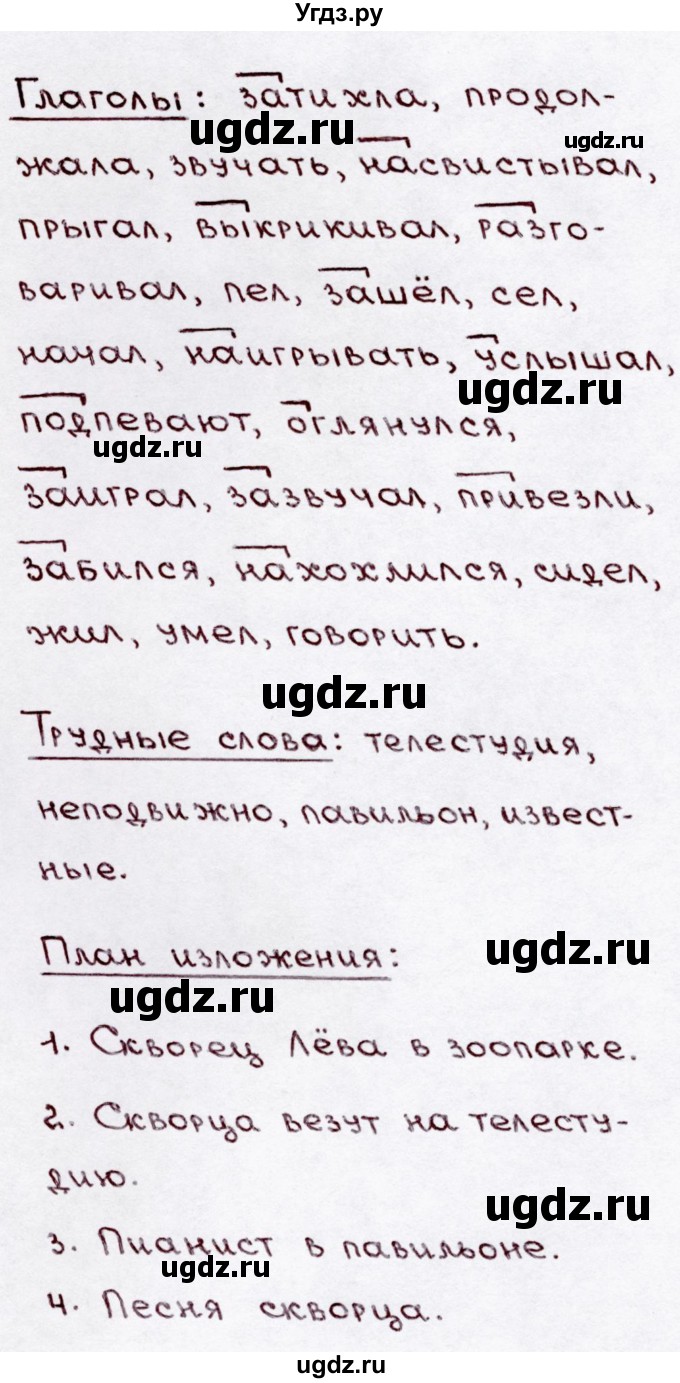 Угдз.ру
Глаголы: затихла, продол-
ugdz.ru
ugdz.ru
жала, звучать, насвистывал,
прыгал, выкрикивал, разго-
варивал, пел, зашёл, сел,
начал, наигрывать, услышал,
ugdz.ru
подпевают, оглянулся,
ugdz.ru
заиграл, зазвучал, привезли,
забился, нахохлился, сидел,
жил, умел, говорить.
ugdz.ru
Трудные слова: телестудия,
неподвижно, павильон, извест-
ные.
План изложения:
ugdz.ru
ugdz.ru
1. Скворец Лёва в зоопарке.
2. Скворца везут на телесту-
дию.
ugdz.ru
3. Пианист в павильоне.
ugdz.ru
4. Песня скворца.
ugdz.ru